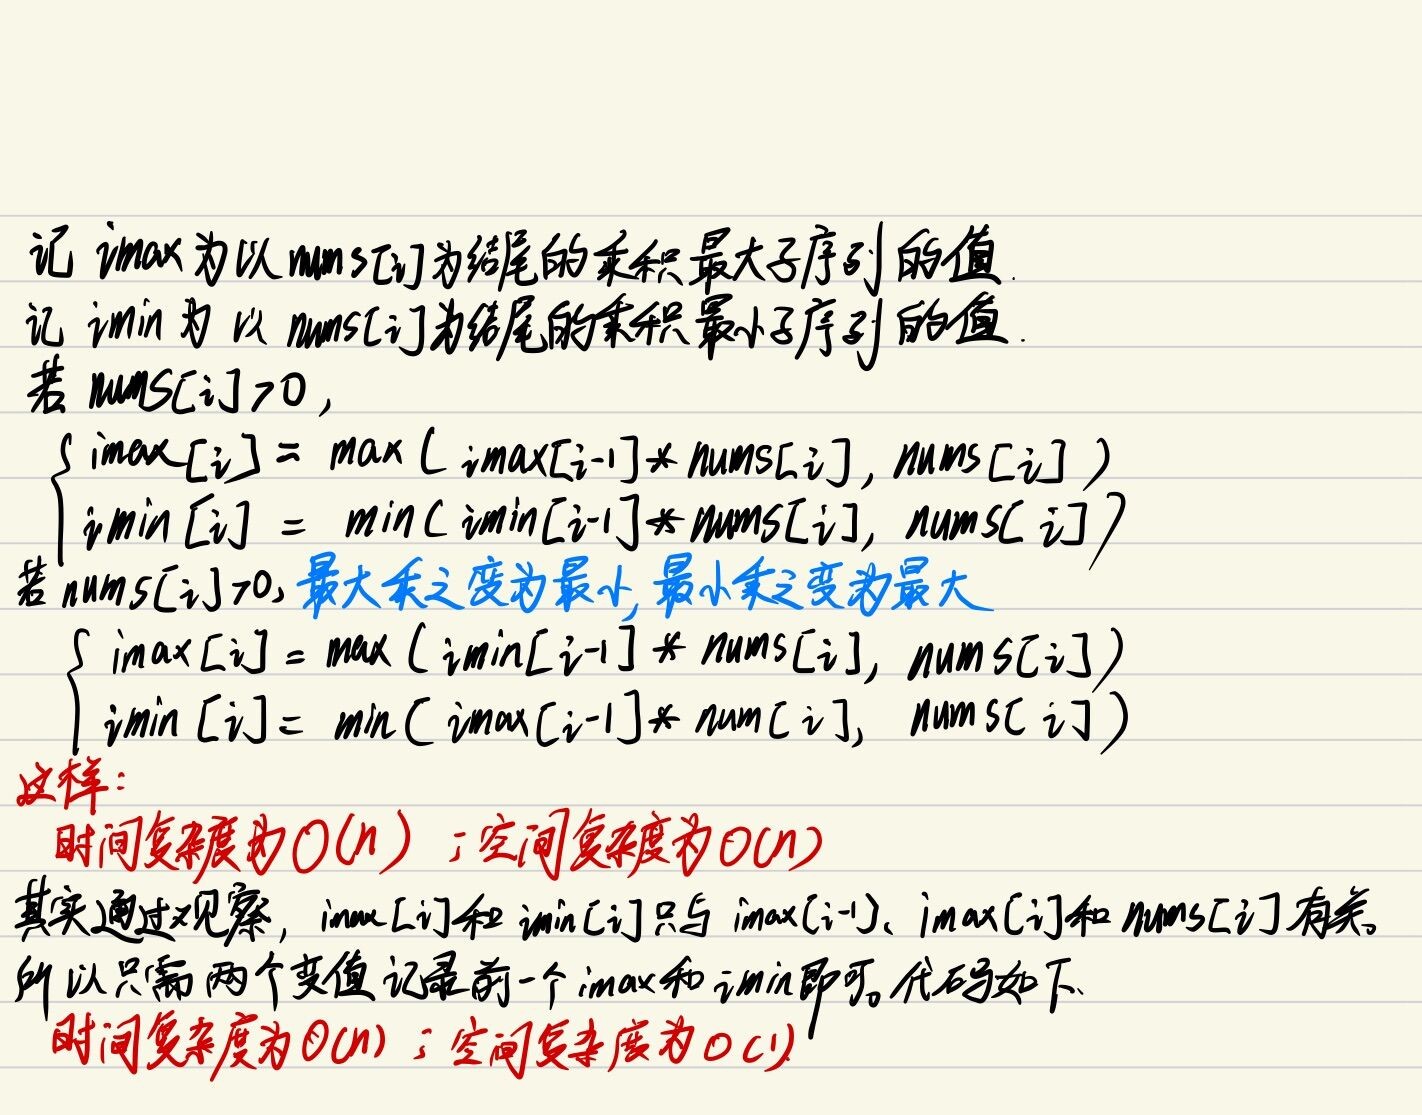 记 imax 为以 nums[i]为结尾的乘积最大子序列的值.
记 imin 为 以 nums[i]为结尾的乘积最小子序列的值.
若 nums[i]>0,
imax[i] = max ( imax[i-1]*nums[i], nums[i] )
imin[i] = min( imin[i-1]*nums[i], nums[i] )
若 nums[i]>0, 最大乘之变为最小, 最小乘之变为最大
imax[i] = max ( imin[i-1] * nums[i], nums[i] )
imin[i] = min( imax[i-1]* num[i], nums[i] )
这样:
时间复杂度为O(n) ; 空间复杂度为O(n)
其实通过观察, imax[i]和 imin[i]只与 imax(i-1)、imax[i]和 nums[i]有关。
所以只需两个变值记录前一个imax和imin即可。代码如下、
时间复杂度为O(n) ; 空间复杂度为O(1)